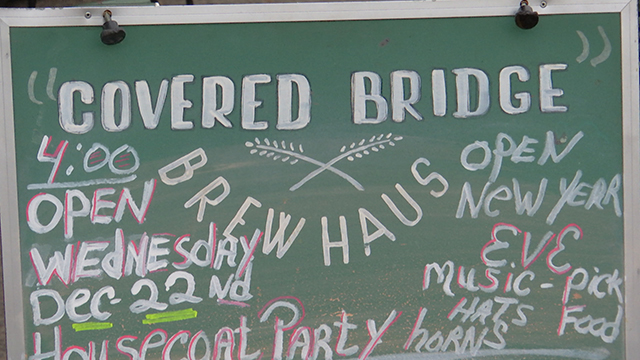 (( COVERED BRIDGE ))
BREWHAUS
4:00
OPEN
WEDNESDAY
DEC-22nd
HOUSECOAT PARTY
OPEN
NEW YEAR
EVE
music - pick
HATS Food
horns